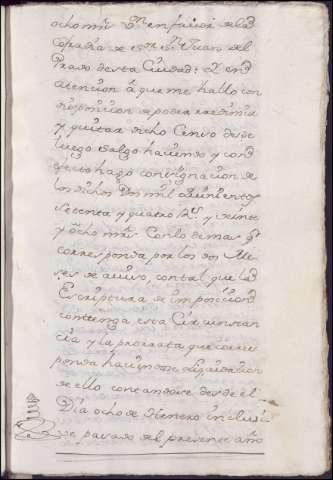 ocho mrs. En favor de la
Cofradia de Sn. Sn. Juan del
Prado desta Ciudad: Y en
atencion á que me hallo con
disposicion de poder redimir
y quitar dicho Censo desde
luego salgo haciendo y con
efecto hago consignacion de
los dichos Dos mil quinientos
setenta y quatro Rs. y veinte
y ocho mrs. Con lo demas qe.
corresponda por los dos Me-
ses de aviso, con tal que la
Escriptura de imposicion
contenga esta Circunstan
cia y la prorrata que corres
ponda haciendose liquidacion
de ello contandose desde el
Dia ocho de Henero inclusi
ve pasado del presente año